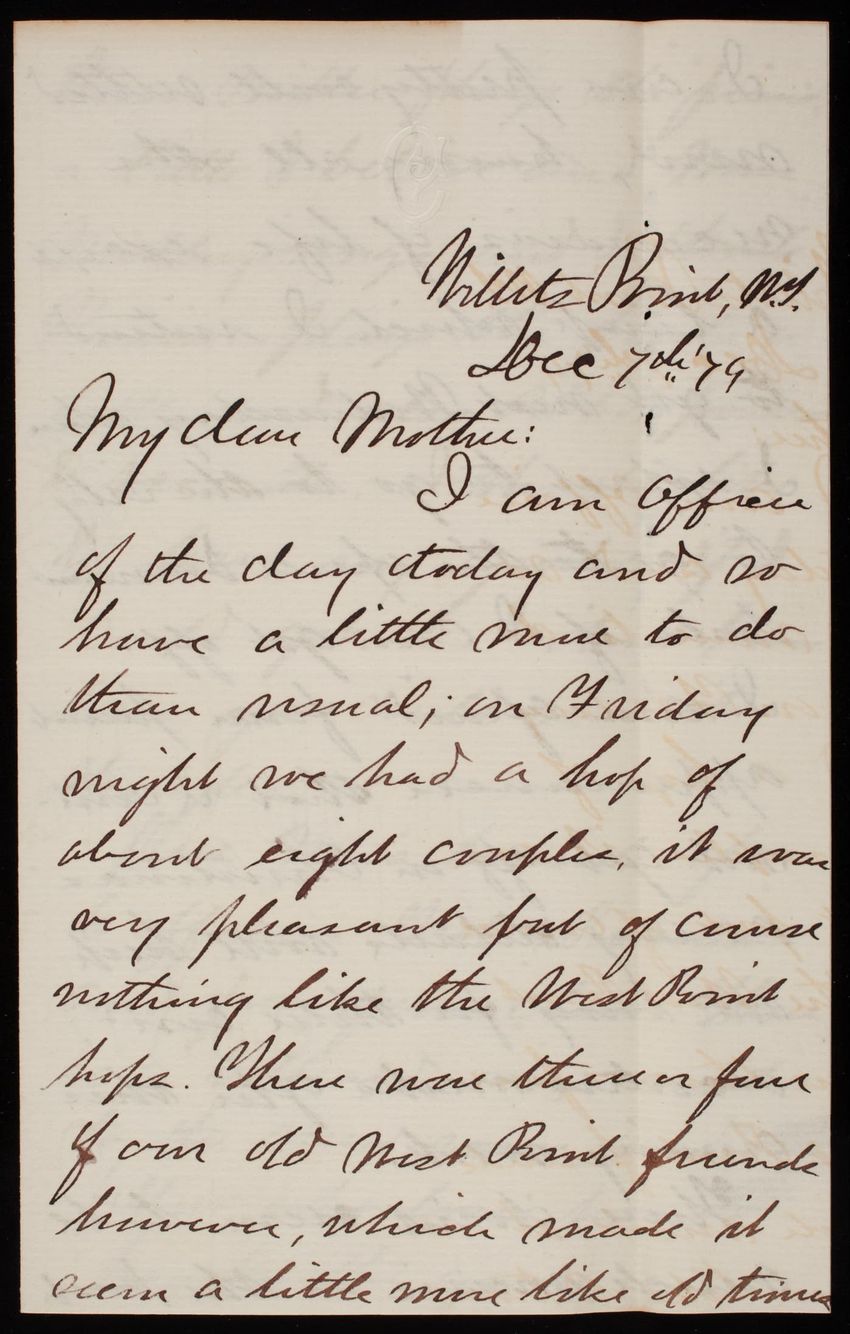 Willets Point, N.Y.
Dec 7th '79
My dear Mother:
I am officer
of the day today and so
have a little more to do
than usual; on Friday
night we had a hop of
about eight couples, it was
very pleasant but of course
nothing like the West Point
hops. There were three or four
of our old West Point friends
however, which made it
seem a little more like old times